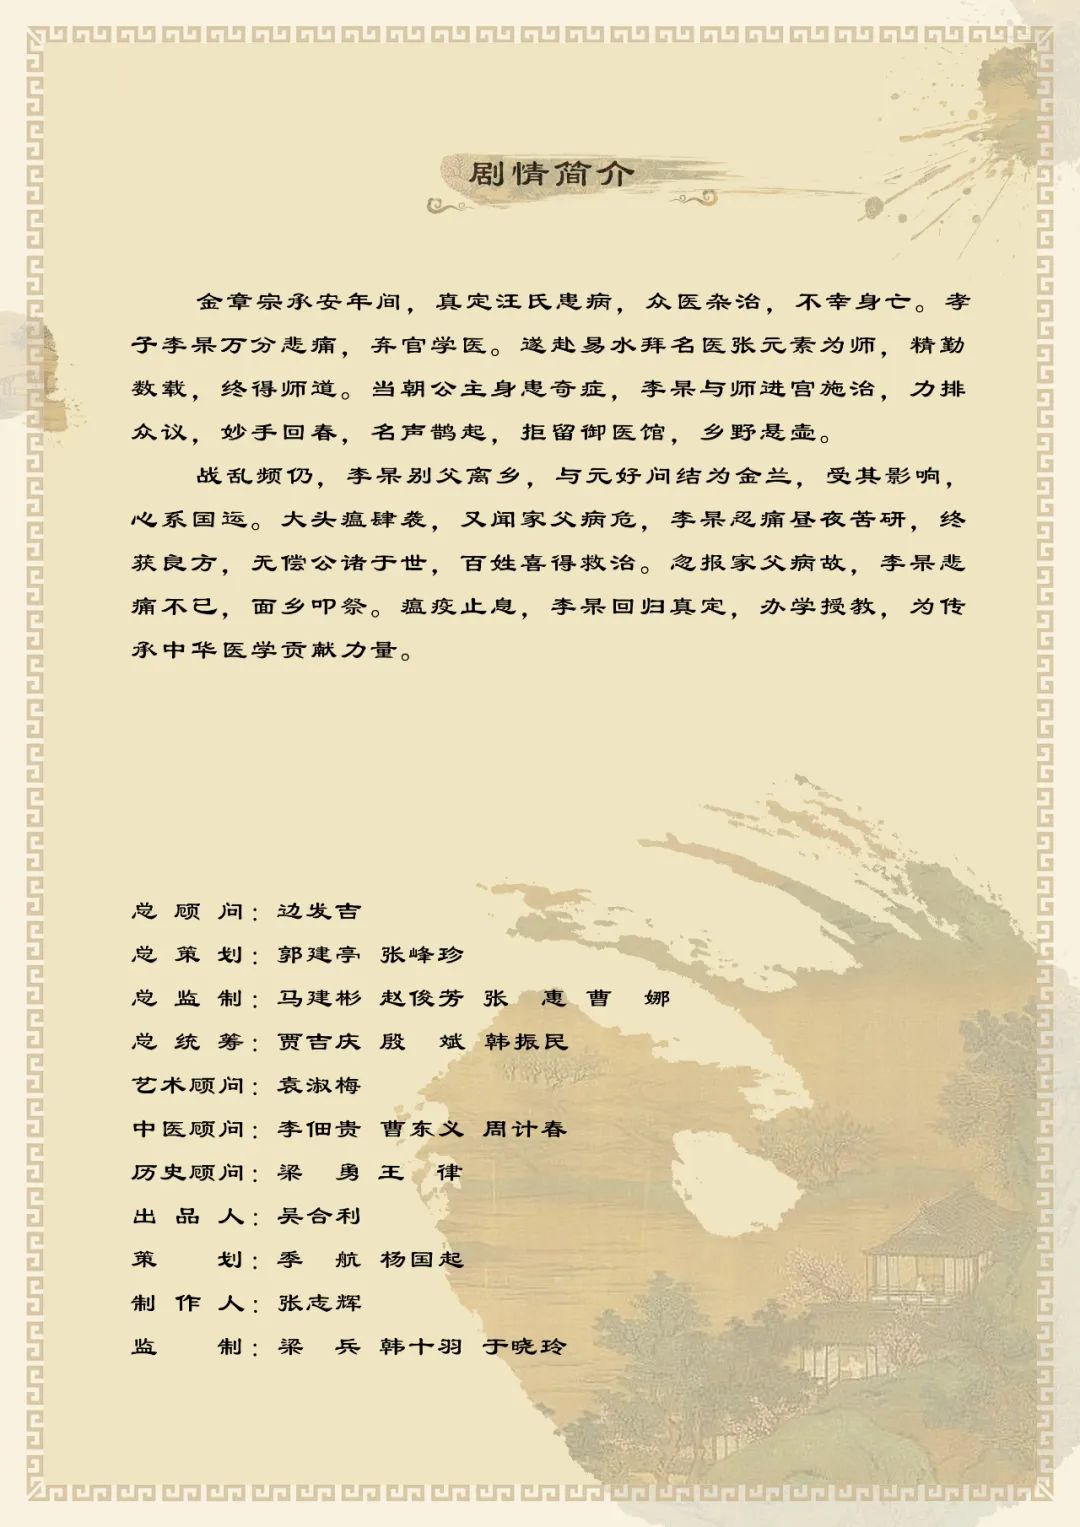 剧情简介
金章宗承安年间，真定汪氏患病，众医杂治，不幸身亡。孝
子李杲万分悲痛，弃官学医。遂赴易水拜名医张元素为师，精勤
数载，终得师道。当朝公主身患奇症，李杲与师进宫施治，力排
众议，妙手回春，名声鹊起，拒留御医馆，乡野悬壶。
战乱频仍，李杲别父离乡，与元好问结为金兰，受其影响，
心系国运。大头瘟肆袭，又闻家父病危，李杲忍痛昼夜苦研，终
获良方，无偿公诸于世，百姓喜得救治。忽报家父病故，李杲悲
痛不已，面乡叩祭。瘟疫止息，李杲回归真定，办学授教，为传
承中华医学贡献力量。
总 顾 问：边发吉
总 策 划：郭建亭 张峰珍
总 监 制：马建彬 赵俊芳 张 惠 曹 娜
总 统 筹：贾吉庆 殷 斌 韩振民
艺术顾问：袁淑梅
中医顾问：李佃贵 曹东义 周计春
历史顾问：梁 勇 王 律
出 品 人：吴合利
策 划：季 航 杨国起
制 作 人：张志辉
监 制：梁 兵 韩十羽 于晓玲